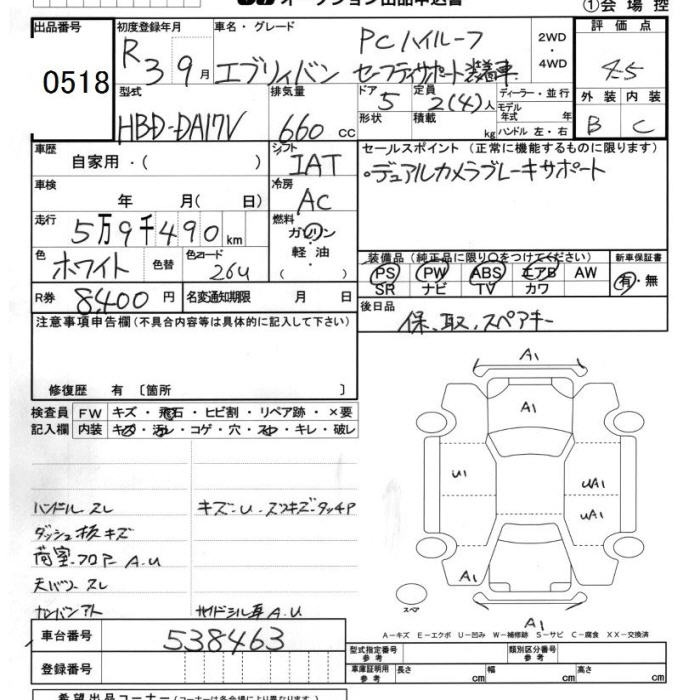 オークション出品申込書
①会場控
出品番号 初度登録年月 車名・グレード 評価点
0518 R3 9月 エブリィバン PCハイルーフ セーフティサポート装着車 2WD・4WD 4.5
型式 排気量 ドア 定員 ディーラー・並行 外装 内装
HBD-DA17V 660cc 5 2(4)人 モデル年式 年 B C
形状 積載 kg ハンドル 左・右
車歴 シフト セールスポイント (正常に機能するものに限ります)
自家用・( ) IAT ・デュアルカメラブレーキサポート
車検 冷房
年 月( 日) AC
走行 燃料
5万9千490km ガソリン・軽油・( )
色 ホワイト 色替 色コード 26U
装備品 (純正品に限り〇をつけてください) 新車保証書
PS PW ABS エアB AW 有・無
SR ナビ TV カワ
R券 8,400円 名変通知期限 月 日
後日品
保、取、スペアキー
注意事項申告欄 (不具合内容等は具体的に記入して下さい)
修復歴 有 〔箇所 〕
検査員 FW キズ・飛石・ヒビ割・リペア跡・×要
記入欄 内装 キズ・汚レ・コゲ・穴・スレ・キレ・破レ
ハンドル スレ キズ・U・スリキズ・タッチP
ダッシュ板 キズ
荷室・フロアー A.U
天バリ スレ
カンバンアト サイドシル耳 A.U
A1
A1
U1
UA1
UA1
A1
A1
スペア
A−キズ E−エクボ U−凹み W−補修跡 S−サビ C−腐食 XX−交換済
車台番号 538463
登録番号
型式指定番号 参考 類別区分番号 参考
車庫証明用 参考 長さ cm 幅 cm 高さ cm
希望出品コーナー (コーナーは各会場により異なります)